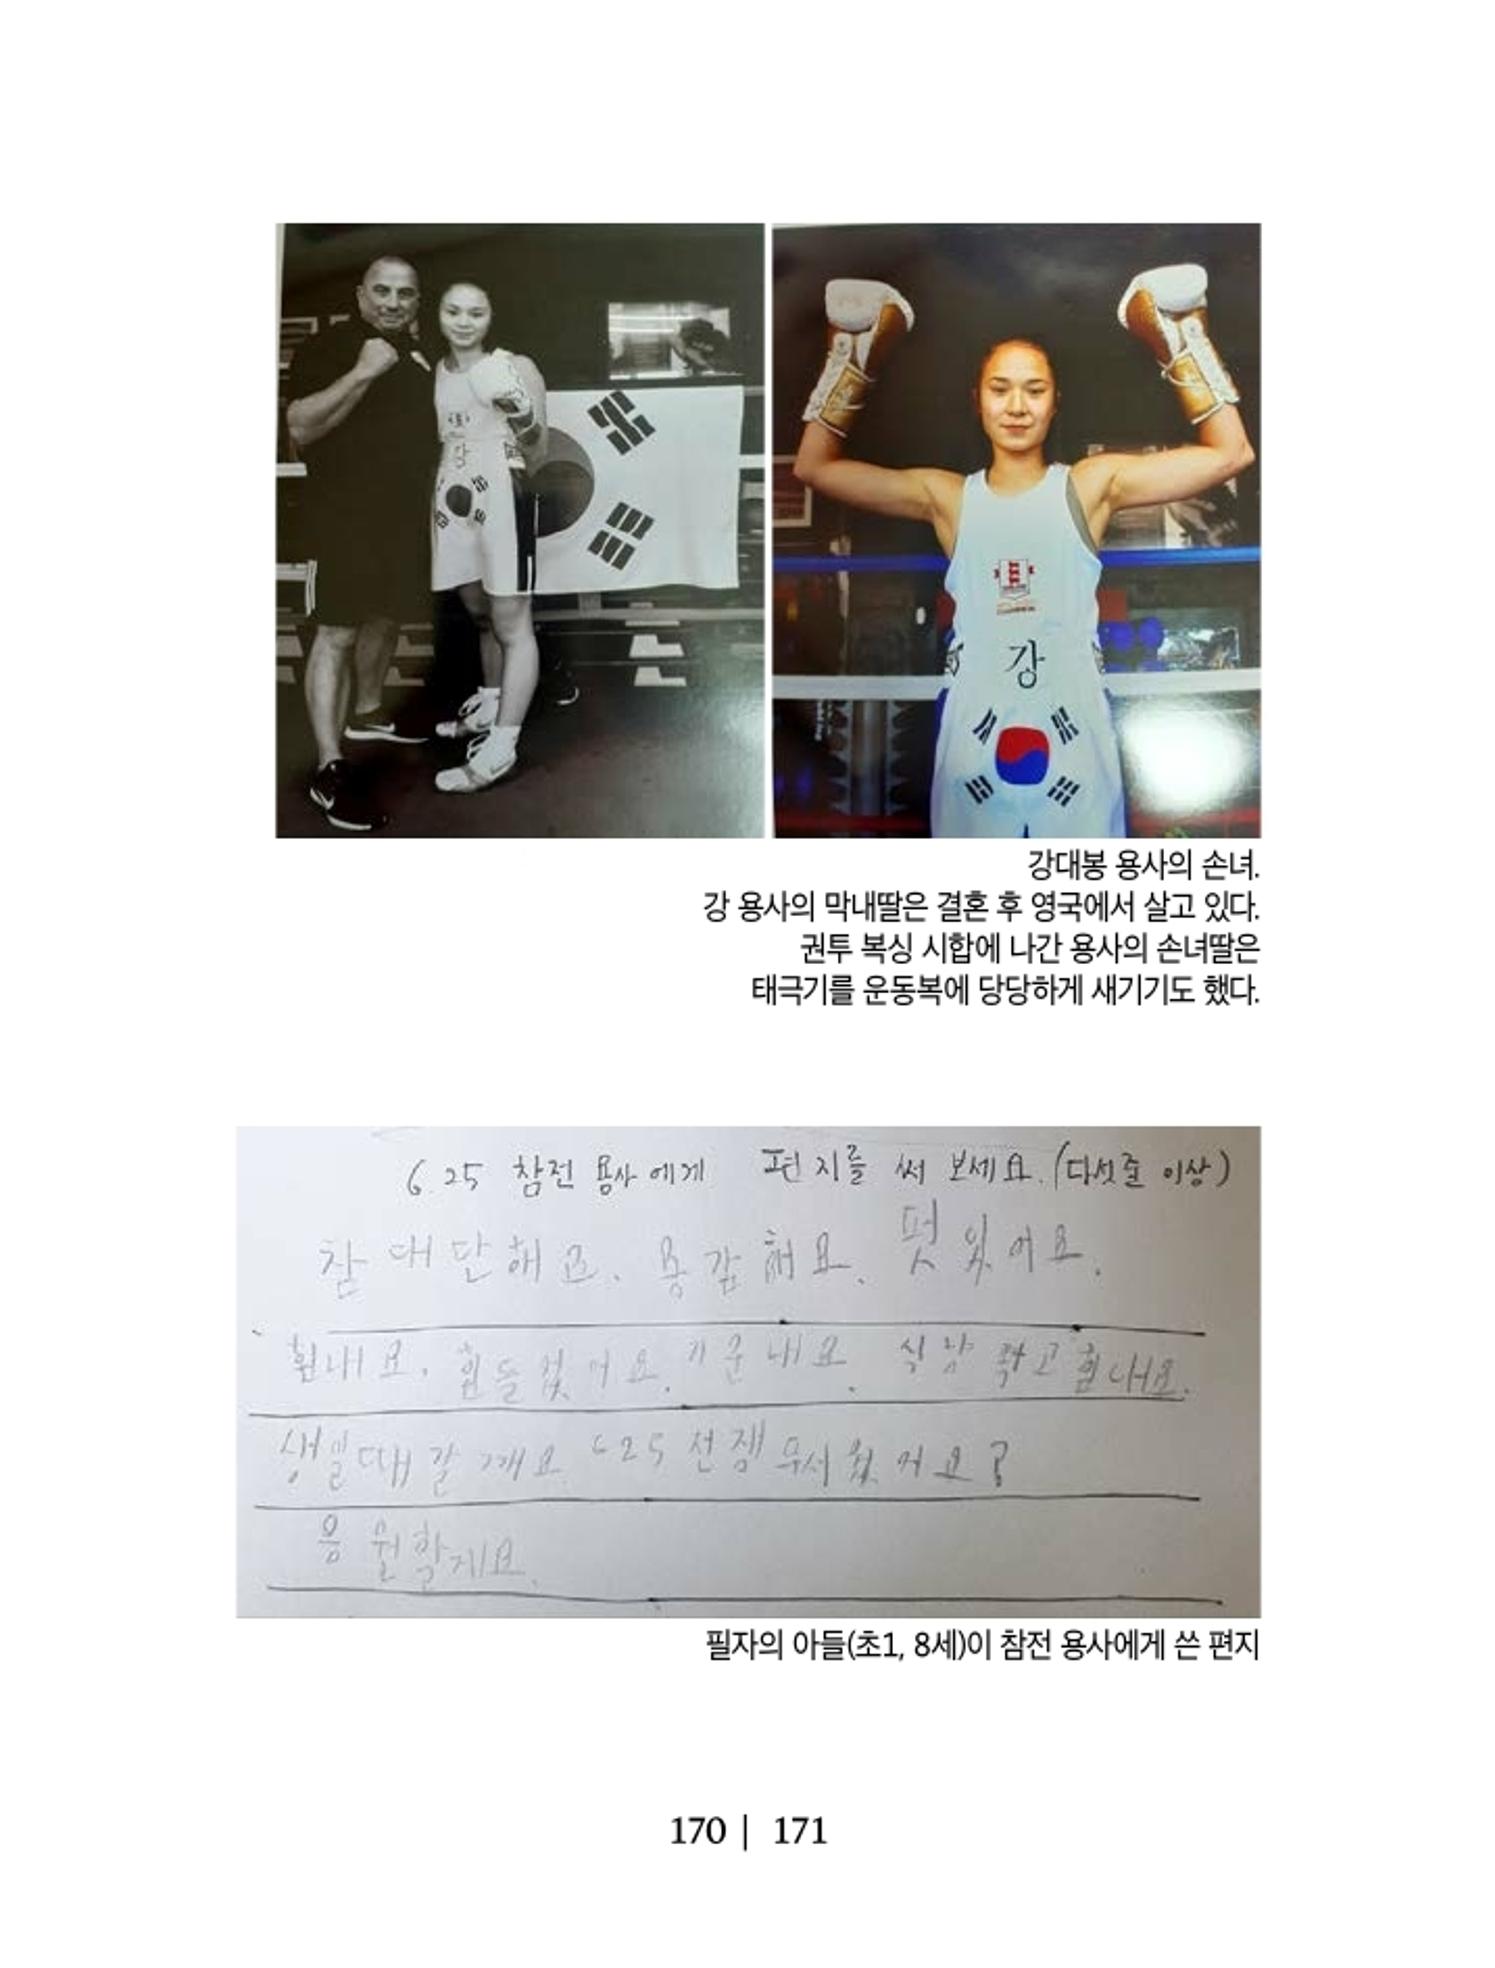 강
강대봉 용사의 손녀.
강 용사의 막내딸은 결혼 후 영국에서 살고 있다.
권투 복싱 시합에 나간 용사의 손녀딸은
태극기를 운동복에 당당하게 새기기도 했다.
6.25 참전 용사에게 편지를 써 보세요. (다섯줄 이상)
참 대단해요. 용감해요. 멋있어요.
힘내요. 힘들었어요. 기운내요. 식량 먹고 힘내요.
생일때 갈깨요 625 전쟁 무서웠어요?
응원할게요.
필자의 아들(초1, 8세)이 참전 용사에게 쓴 편지
170 | 171